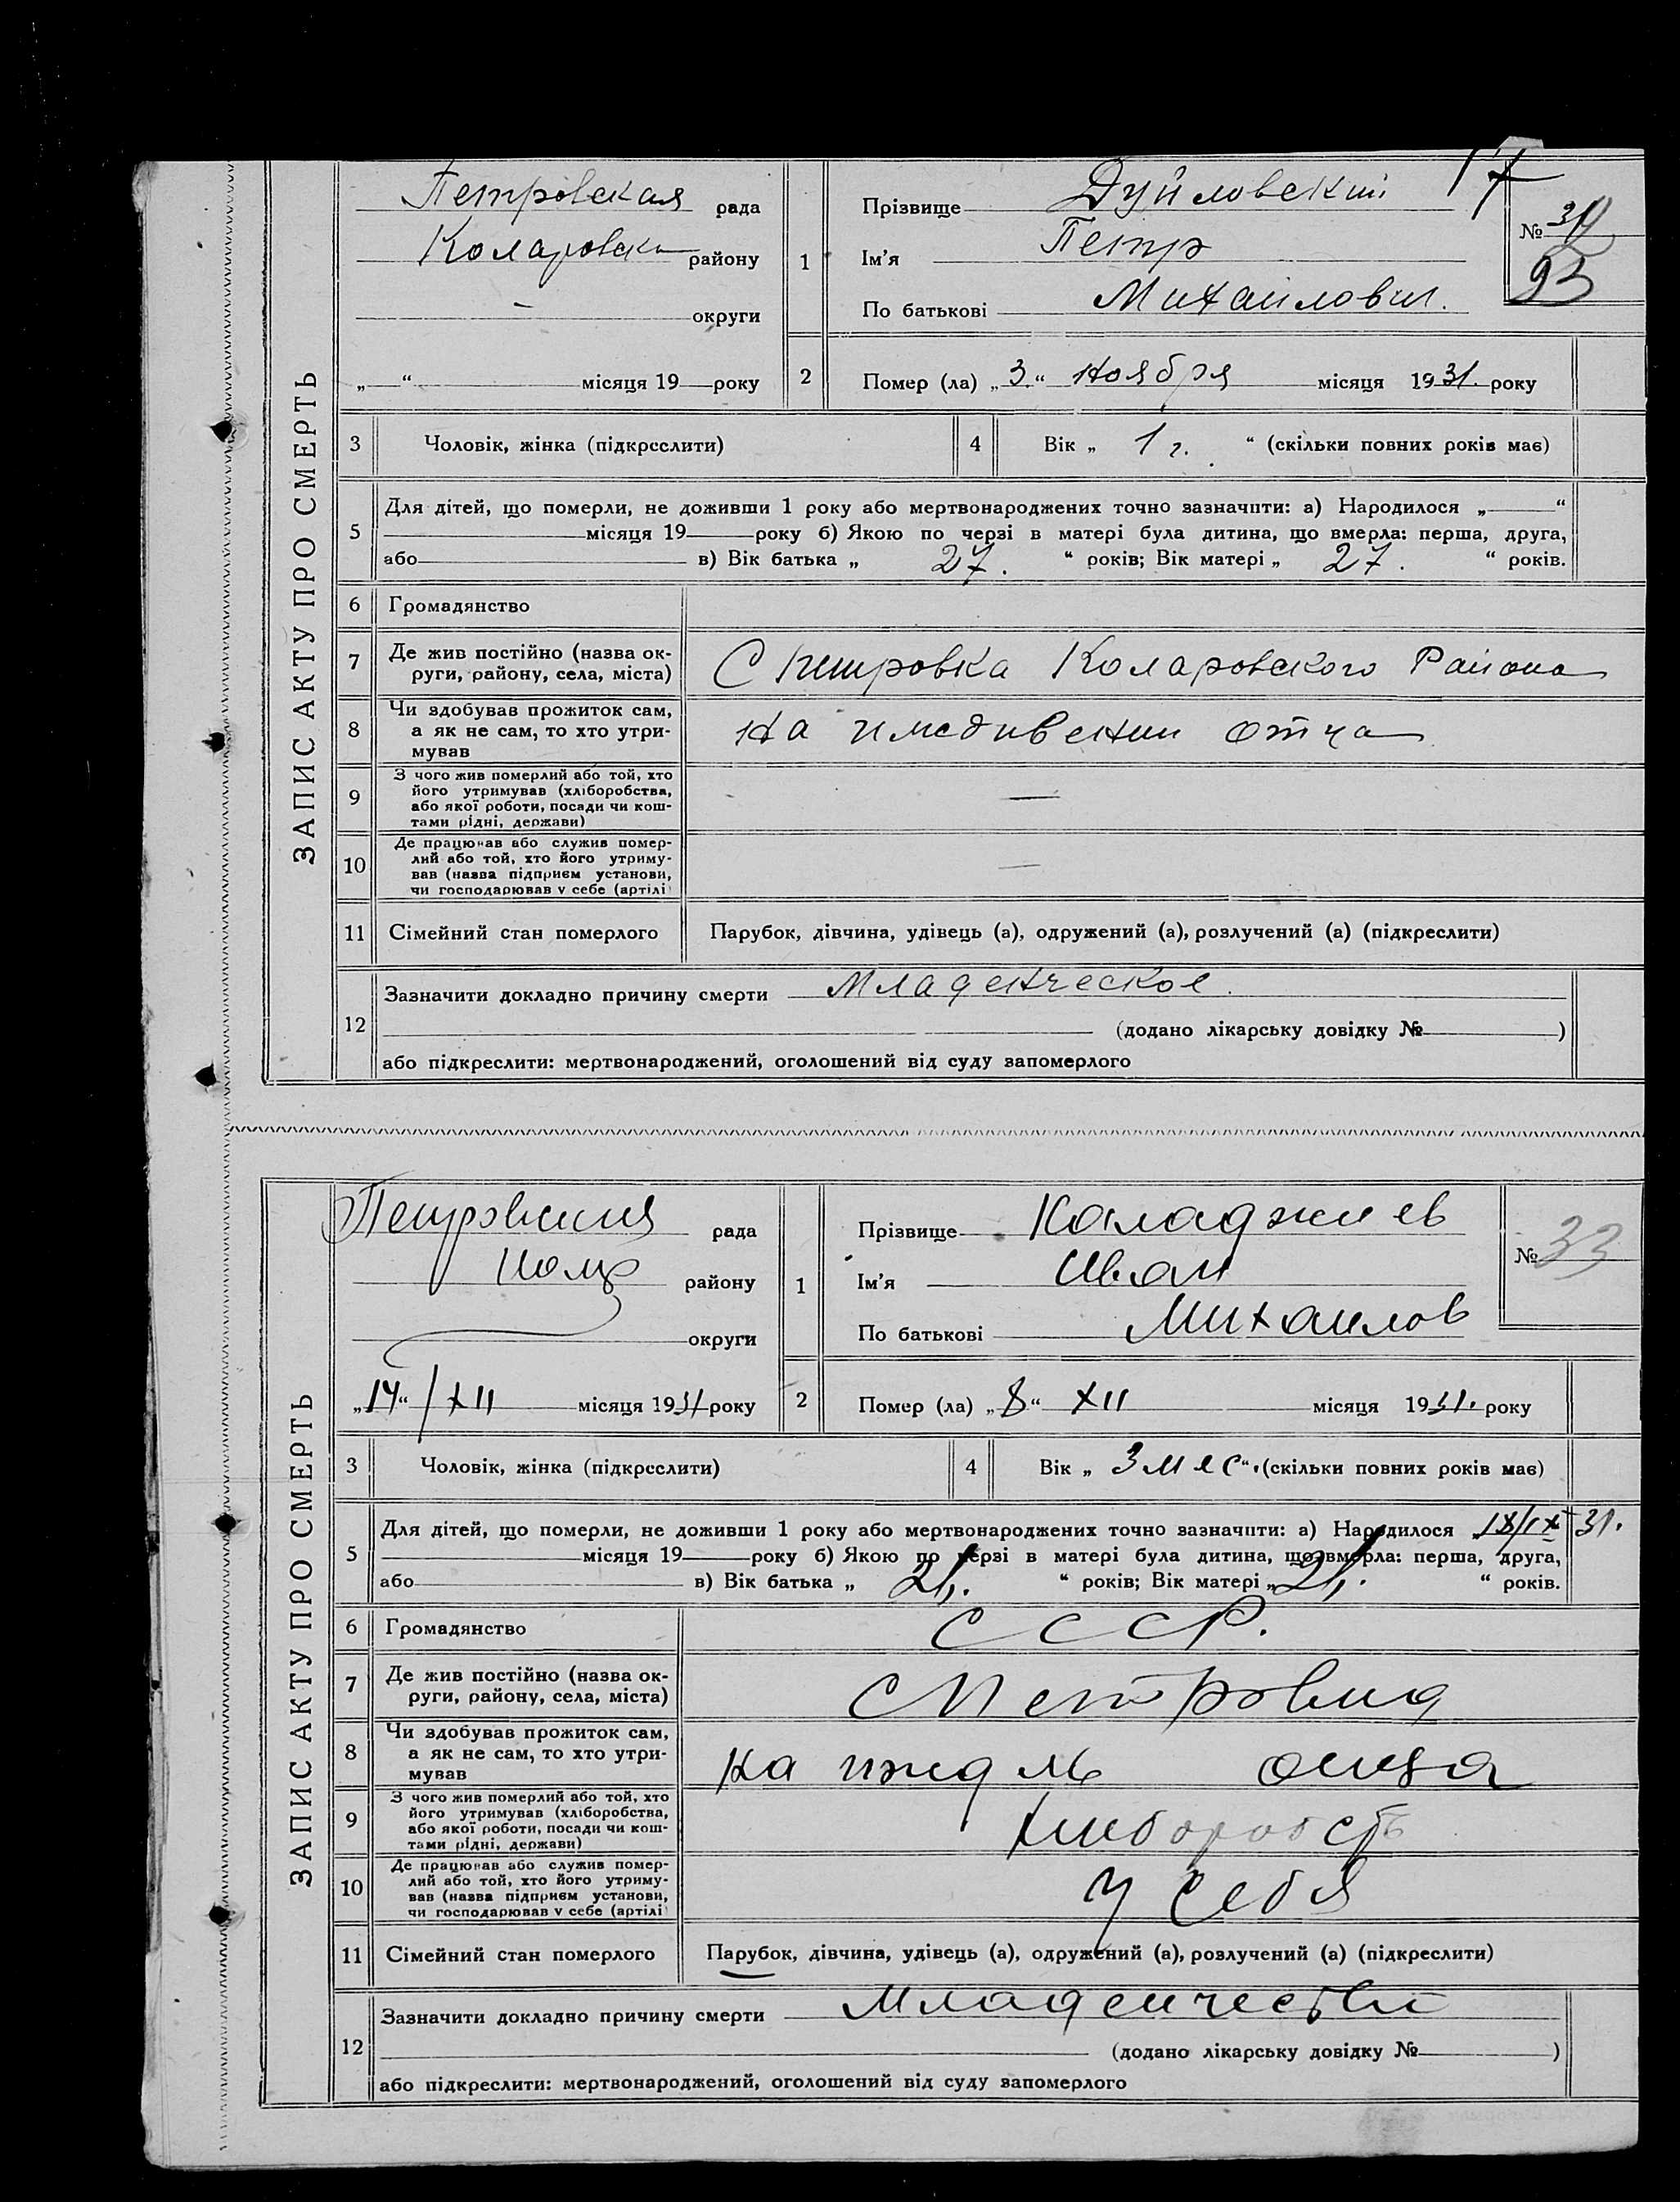 ЗАПИС АКТУ ПРО СМЕРТЬ
Петровская рада
Коларовски району
— округи
„ “ місяця 19 року
1
Прізвище Дуйловский
17
Ім'я Петр
По батькові Михайлович.
№
93
2
Помер (ла) „3“ ноября місяця 1931. року
3 Чоловік, жінка (підкреслити)
4 Вік „ 1 г. “ (скільки повних років має)
5
Для дітей, що померли, не доживши 1 року або мертвонароджених точно зазначити: а) Народилося „ “
місяця 19 року б) Якою по черзі в матері була дитина, що вмерла: перша, друга,
або в) Вік батька „ 27. “ років; Вік матері „ 27. “ років.
6 Громадянство
7 Де жив постійно (назва ок-
руги, району, села, міста)
С Петровка Коларовского Района
8 Чи здобував прожиток сам,
а як не сам, то хто утри-
мував
на иждивении отца
9 З чого жив померлий або той, хто
його утримував (хліборобства,
або якої роботи, посади чи кош-
тами рідні, держави)
—
10 Де працював або служив помер-
лий або той, хто його утриму-
вав (назва підприєм установи,
чи господарював у себе (артілі
—
11 Сімейний стан померлого
Парубок, дівчина, удівець (а), одружений (а), розлучений (а) (підкреслити)
12 Зазначити докладно причину смерти Младенческое.
(додано лікарську довідку № )
або підкреслити: мертвонароджений, оголошений від суду запомерлого
ЗАПИС АКТУ ПРО СМЕРТЬ
Петровская рада
району
округи
„14“ / XII місяця 1931 року
1
Прізвище Каладжиев
Ім'я Иван
По батькові Михайлов
№ 33
2
Помер (ла) „8“ XII місяця 1931. року
3 Чоловік, жінка (підкреслити)
4 Вік „ 3 мес “. (скільки повних років має)
5
Для дітей, що померли, не доживши 1 року або мертвонароджених точно зазначити: а) Народилося 31.
місяця 19 року б) Якою по черзі в матері була дитина, що вмерла: перша, друга,
або в) Вік батька „ 21. “ років; Вік матері „ 21. “ років.
6 Громадянство
СССР.
7 Де жив постійно (назва ок-
руги, району, села, міста)
С Петровка
8 Чи здобував прожиток сам,
а як не сам, то хто утри-
мував
на отца
9 З чого жив померлий або той, хто
його утримував (хліборобства,
або якої роботи, посади чи кош-
тами рідні, держави)
хлиборобств
10 Де працював або служив помер-
лий або той, хто його утриму-
вав (назва підприєм установи,
чи господарював у себе (артілі
у себя
11 Сімейний стан померлого
Парубок, дівчина, удівець (а), одружений (а), розлучений (а) (підкреслити)
12 Зазначити докладно причину смерти
(додано лікарську довідку № )
або підкреслити: мертвонароджений, оголошений від суду запомерлого